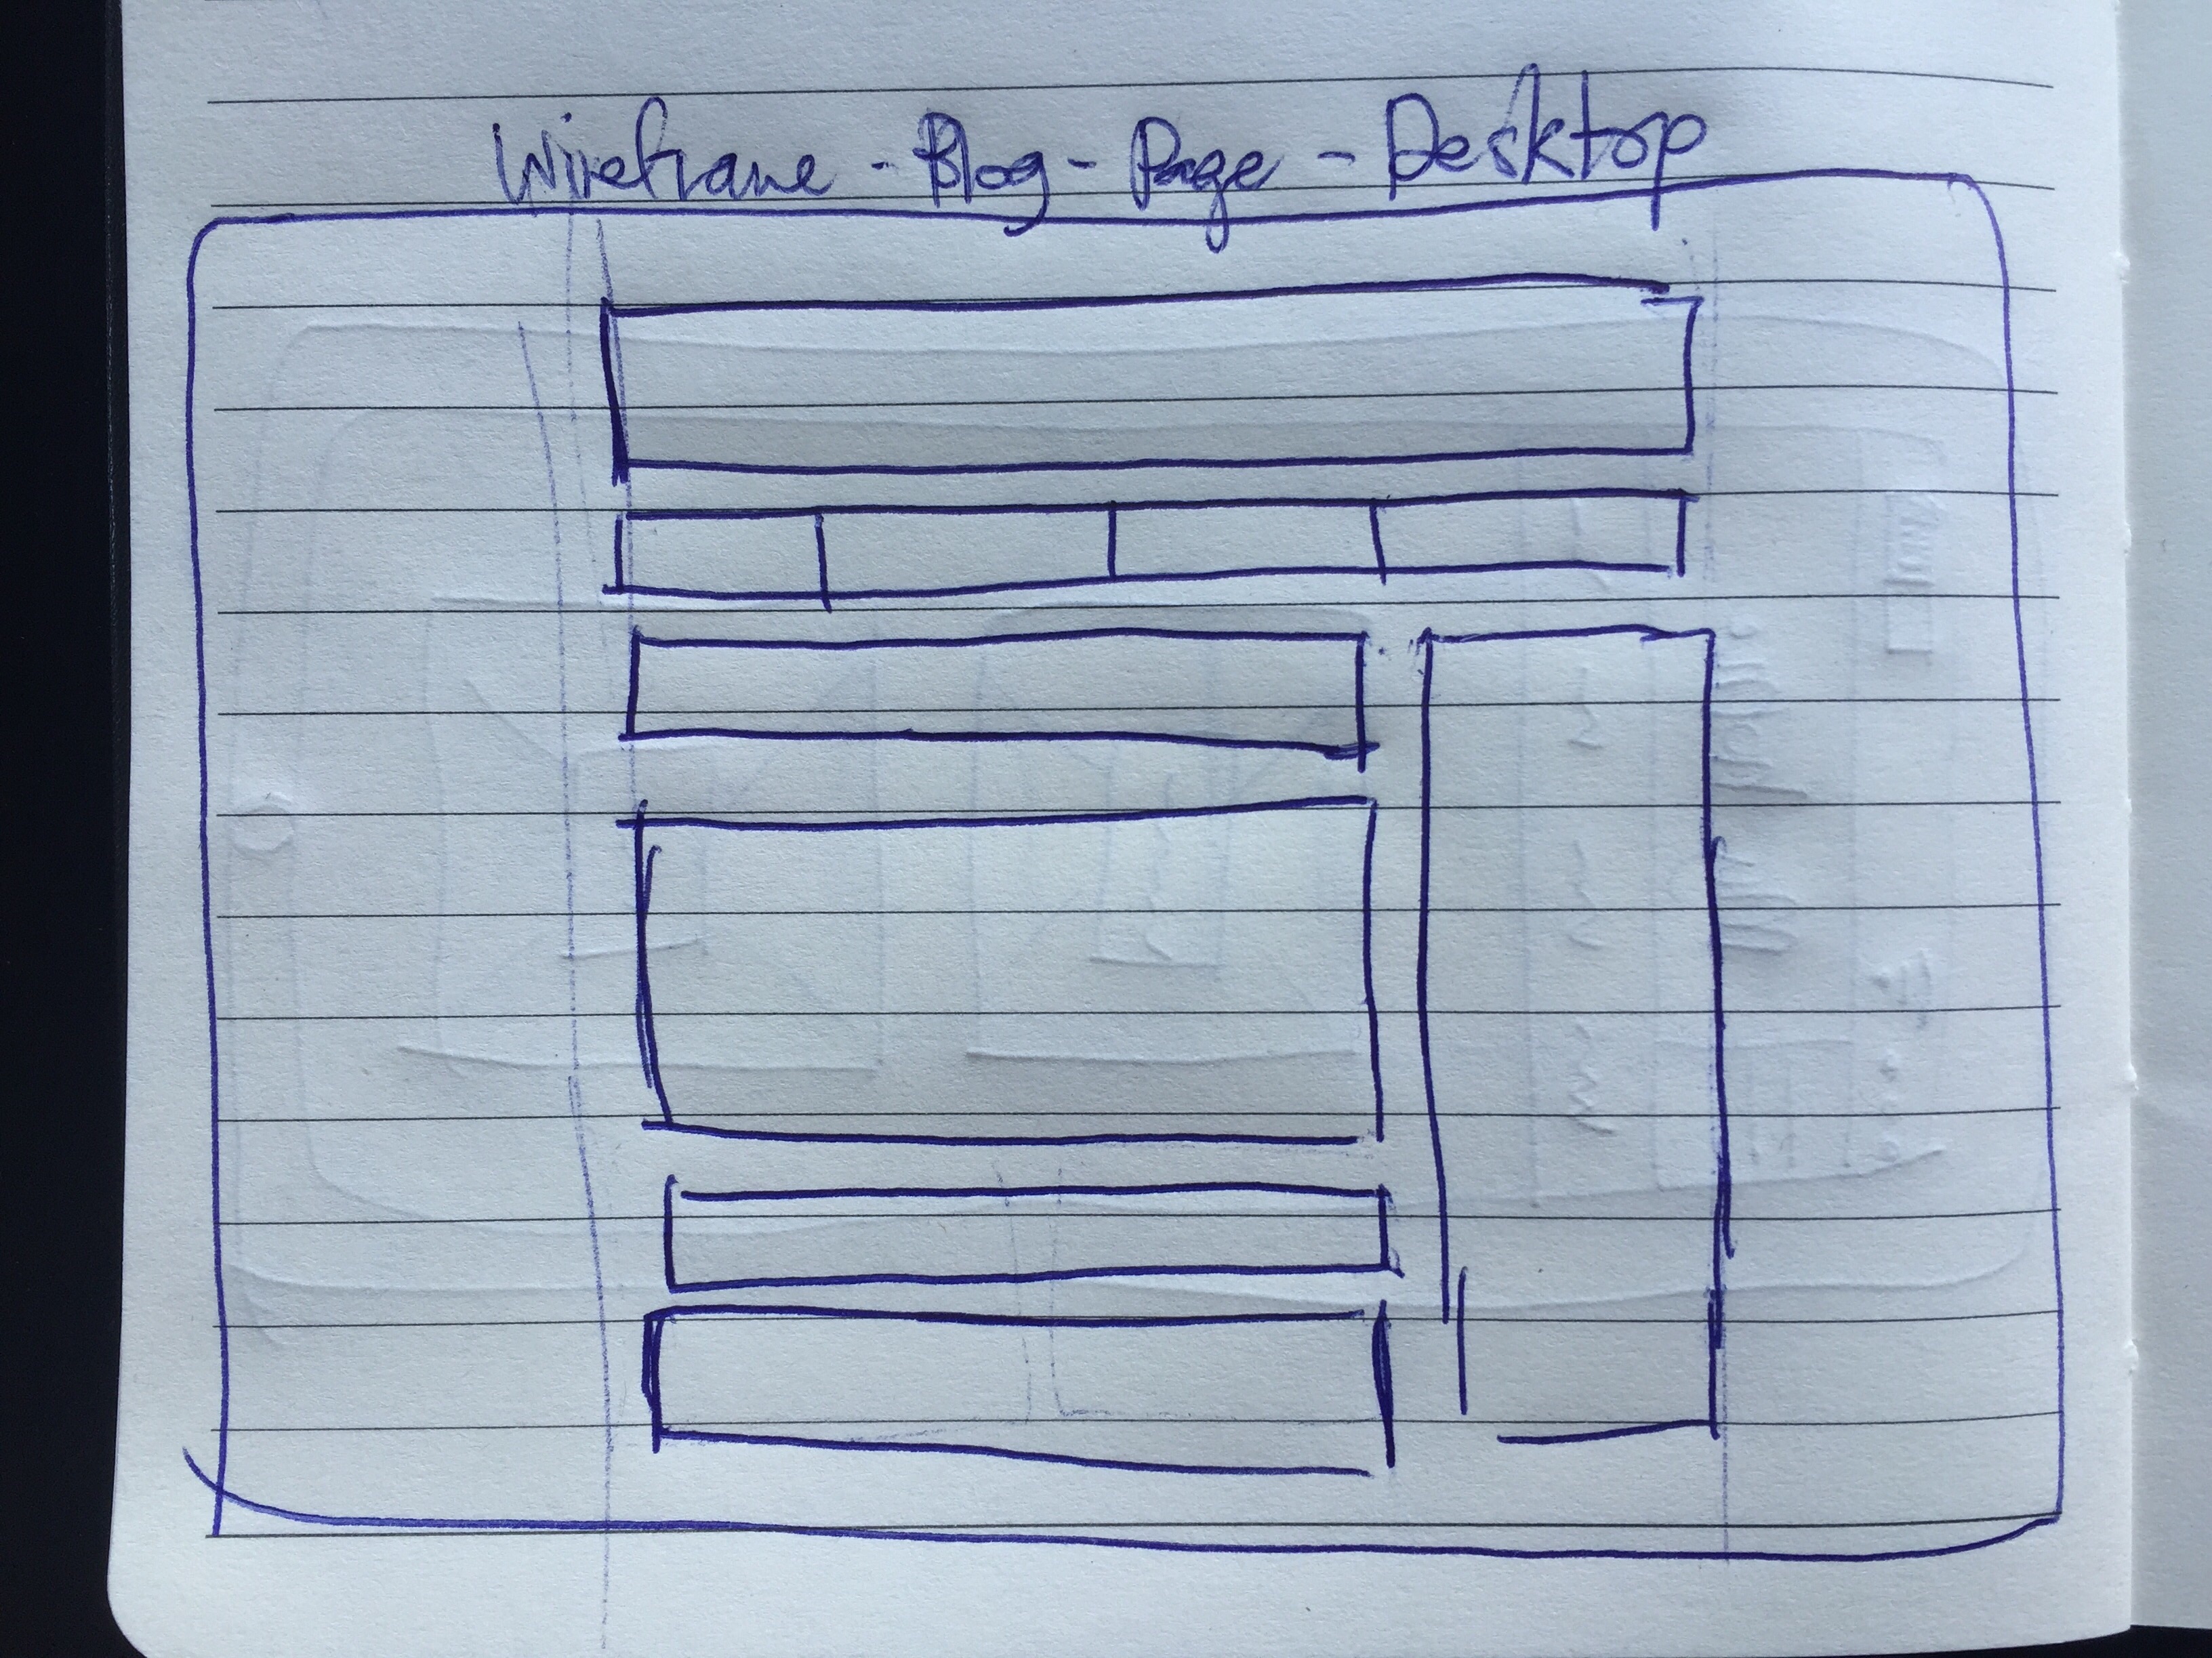 Wireframe - Blog - Page - Desktop